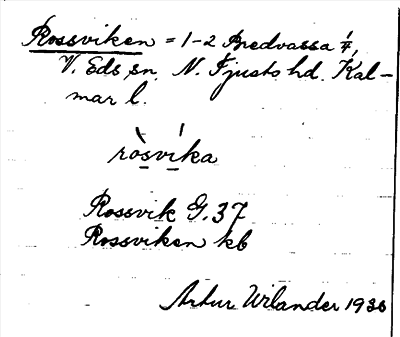 Rossviken = 1-2 Bredvassa 1/4,
V. Eds sn. N. Tjusts hd. Kal-
mar l.
ròsvíka
Rossvik G. 37
Rossviken kb
Artur Wilander 1933